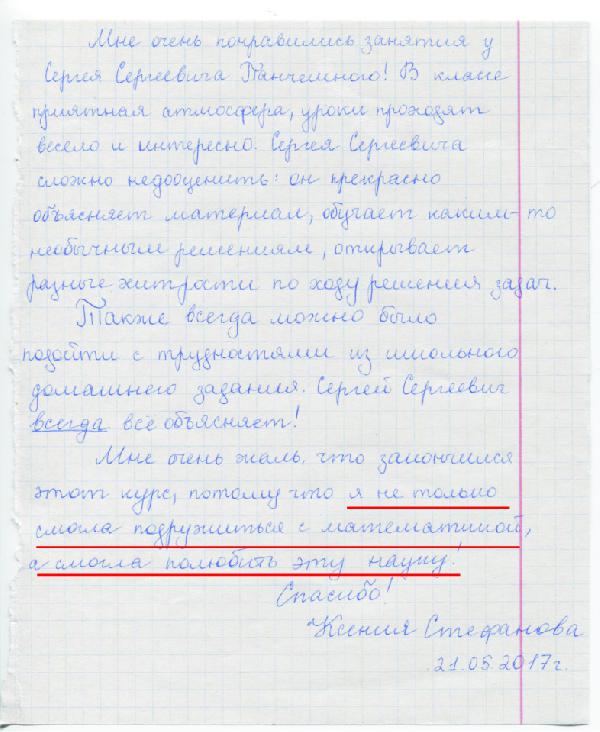 Мне очень понравились занятия у
Сергея Сергеевича Панчешного! В классе
приятная атмосфера, уроки проходят
весело и интересно. Сергея Сергеевича
сложно недооценить: он прекрасно
объясняет материал, обучает каким-то
необычным решениям, открывает
разные хитрости по ходу решения задач.
Также всегда можно было
подойти с трудностями из школьного
домашнего задания. Сергей Сергеевич
всегда всё объясняет!
Мне очень жаль, что закончился
этот курс, потому что я не только
смогла подружиться с математикой,
а смогла полюбить эту науку!
Спасибо!
Ксения Стефанова
21.05.2017г.